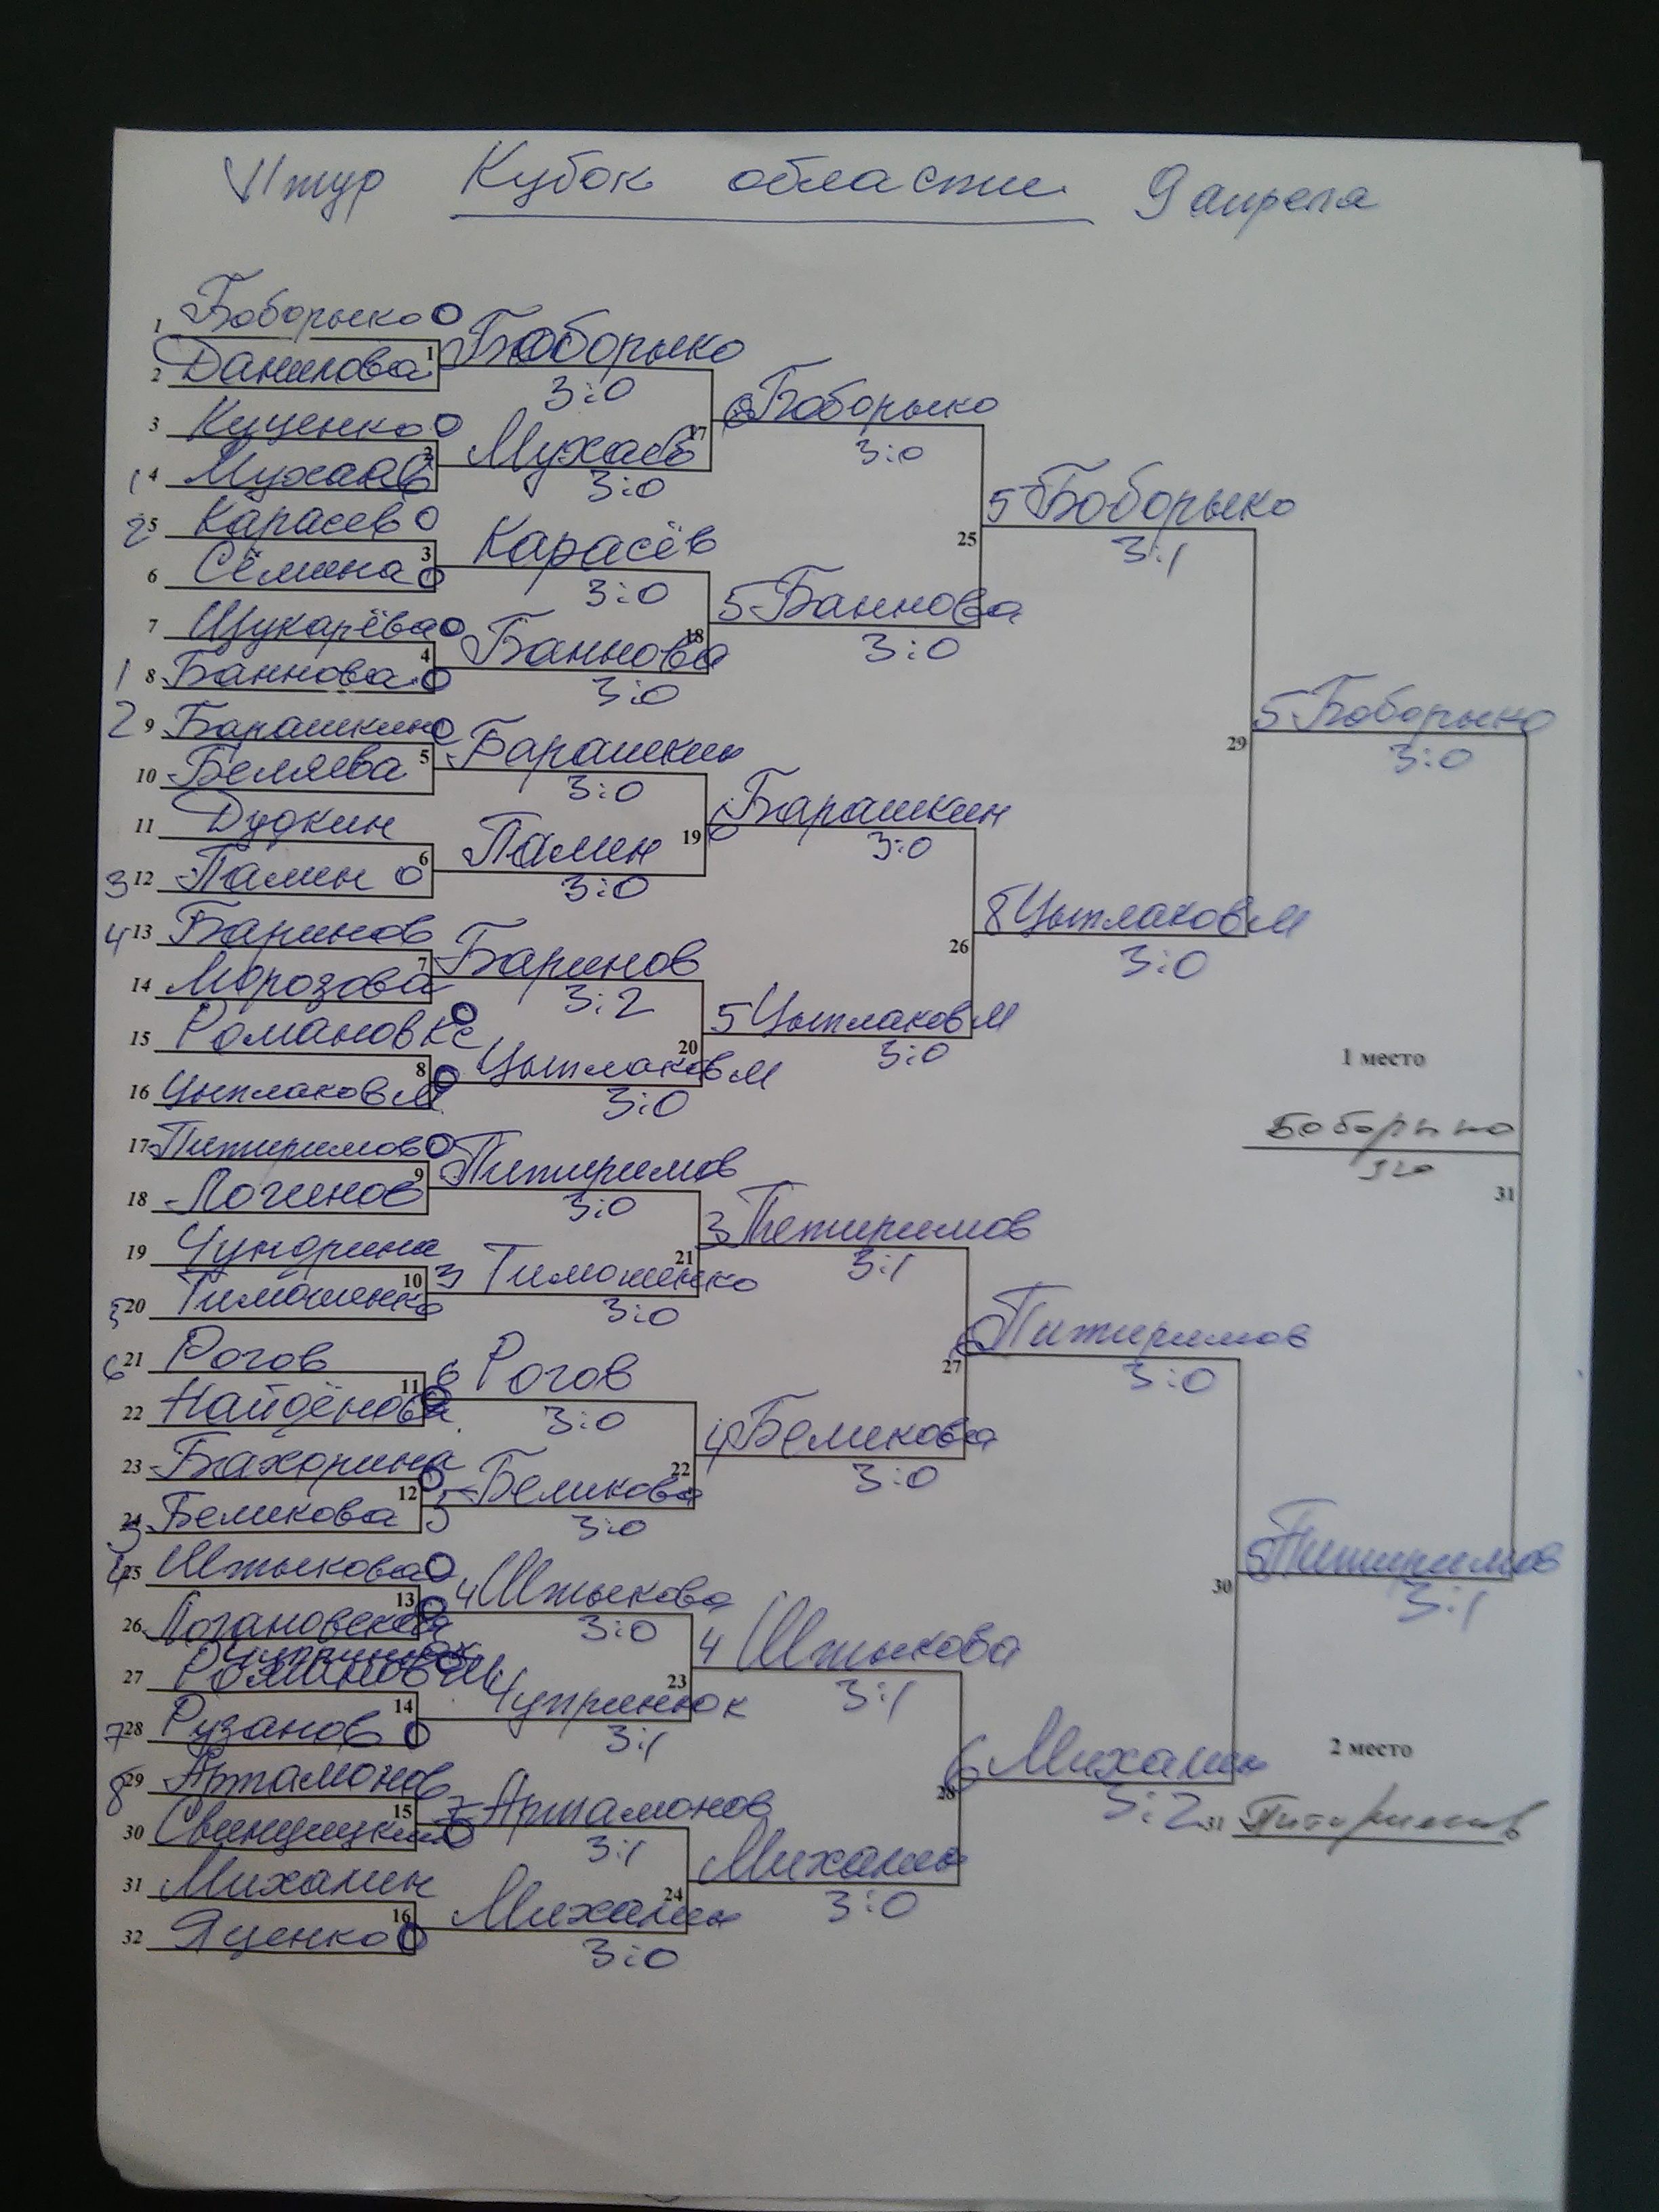 VI тур Кубок области 9 апреля
1 Боборыко
2 Данилова
1 Боборыко
3:0
3 Куценко
4 Мухаев
2 Мухаев
3:0
17 Боборыко
3:0
5 Карасев
6 Сёмина
3 Карасёв
3:0
7 Щукарёва
8 Баннова
4 Баннова
3:0
18 Баннова
3:0
25 Боборыко
3:1
9 Барашкин
10 Беляева
5 Барашкин
3:0
11 Дудкин
12 Палин
6 Палин
3:0
19 Барашкин
3:0
13 Баринов
14 Морозова
7 Баринов
3:2
15 Романов
16 Цыплаков М
8 Цыплаков М
3:0
20 Цыплаков М
3:0
26 Цыплаков М
3:0
29 Боборыко
3:0
17 Питиримов
18 Логинов
9 Питиримов
3:0
19 Чундрина
20 Тимошенко
10 Тимошенко
3:0
21 Петиримов
3:1
21 Рогов
22 Найдёнова
11 Рогов
3:0
23 Бахорина
24 Беликова
12 Беликова
3:0
22 Беликова
3:0
27 Питиримов
3:0
25 Штыкова
26
13 Штыкова
3:0
27
28 Рузанов
14 Чупринюк
3:1
23 Штыкова
3:1
29 Артамонов
30
15 Артамонов
3:1
31 Михалин
32 Яценко
16 Михалин
3:0
24 Михалин
3:0
28 Михалин
3:2
30 Питиримов
3:1
1 место
Боборыко
31
2 место
31 Питиримов